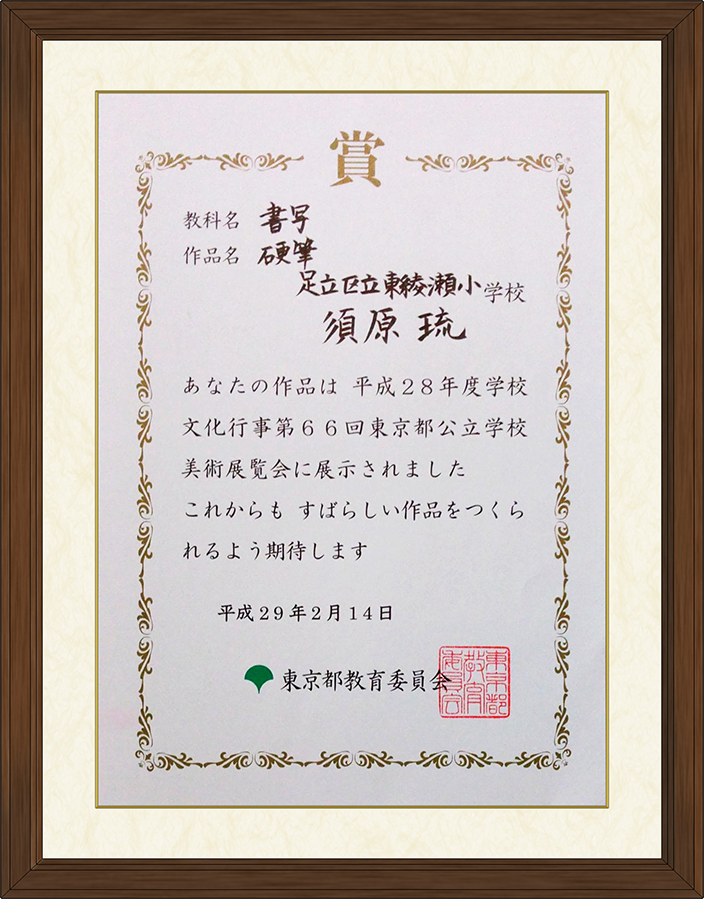 賞
教科名 書写
作品名 硬筆
足立区立東綾瀬小学校
須原 琉
あなたの作品は 平成28年度学校
文化行事第66回東京都公立学校
美術展覧会に展示されました
これからも すばらしい作品をつくら
れるよう期待します
平成29年2月14日
東京都教育委員会
東京都
教育
委員会